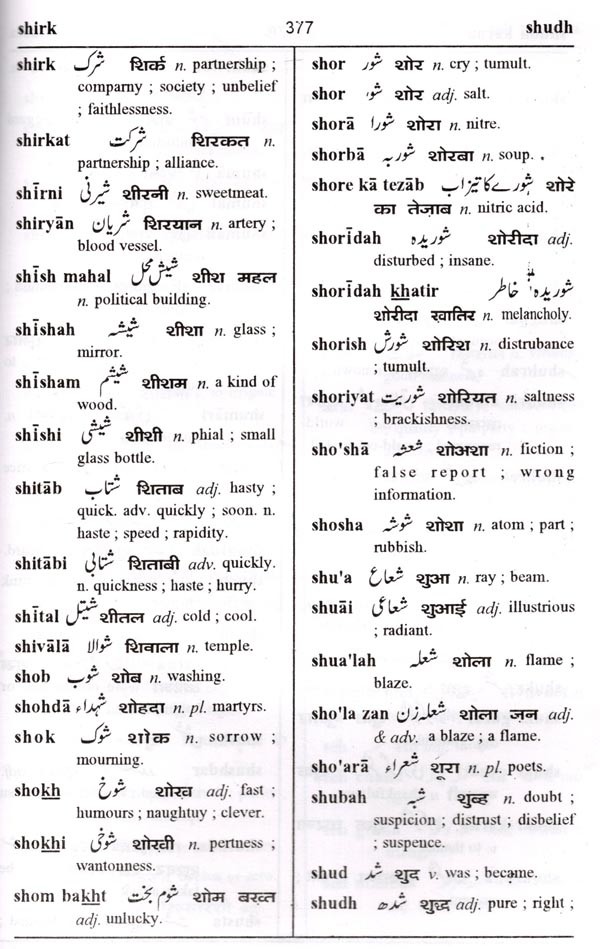 shirk 377 shudh
shirk شرک शिर्क n. partnership ;
comparny ; society ; unbelief
; faithlessness.
shirkat شرکت शिरकत n.
partnership ; alliance.
shīrni شیرنی शीरनी n. sweetmeat.
shiryān شریان शिरयान n. artery ;
blood vessel.
shīsh mahal شیش محل शीश महल
n. political building.
shīshah شیشہ शीशा n. glass ;
mirror.
shīsham شیشم शीशम n. a kind of
wood.
shīshi شیشی शीशी n. phial ; small
glass bottle.
shitāb شتاب शिताब adj. hasty ;
quick. adv. quickly ; soon. n.
haste ; speed ; rapidity.
shitābi شتابی शिताबी adv. quickly.
n. quickness ; haste ; hurry.
shītal شیتل शीतल adj. cold ; cool.
shivālā شوالا शिवाला n. temple.
shob شوب शोब n. washing.
shohdā شہداء शोहदा n. pl. martyrs.
shok شوک शोक n. sorrow ;
mourning.
shokh شوخ शोख़ adj. fast ;
humours ; naughtuy ; clever.
shokhi شوخی शोख़ी n. pertness ;
wantonness.
shom bakht شوم بخت शोम बख़्त
adj. unlucky.
shor شور शोर n. cry ; tumult.
shor شور शोर adj. salt.
shorā شورا शोरा n. nitre.
shorbā شوربہ शोरबा n. soup.
shore kā tezāb شورے کا تیزاب शोरे
का तेज़ाब n. nitric acid.
shorīdah شوریدہ शोरीदा adj.
disturbed ; insane.
shorīdah khatir شوریدہ خاطر
शोरीदा ख़ातिर n. melancholy.
shorish شورش शोरिश n. distrubance
; tumult.
shoriyat شوریت शोरियत n. saltness
; brackishness.
sho'shā شعشہ शोअशा n. fiction ;
false report ; wrong
information.
shosha شوشہ शोशा n. atom ; part ;
rubbish.
shu'a شعاع शुआ n. ray ; beam.
shuāi شعاعی शुआई adj. illustrious
; radiant.
shua'lah شعلہ शोला n. flame ;
blaze.
sho'la zan شعلہ زن शोला ज़न adj.
& adv. a blaze ; a flame.
sho'arā شعراء शूरा n. pl. poets.
shubah شبہ शुव्ह n. doubt ;
suspicion ; distrust ; disbelief
; suspence.
shud شد शुद v. was ; became.
shudh شدھ शुद्ध adj. pure ; right ;